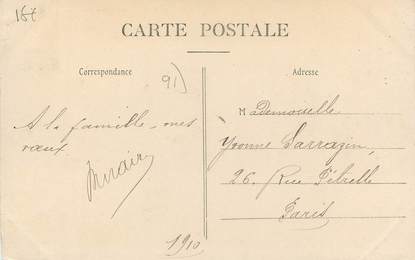 187
CARTE POSTALE
Correspondance
91)
Adresse
A la famille mes
vœux
Mademoiselle
Yvonne Sarrazin,
26. Rue
Paris
1910